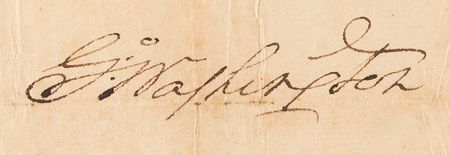 Gº: Washington